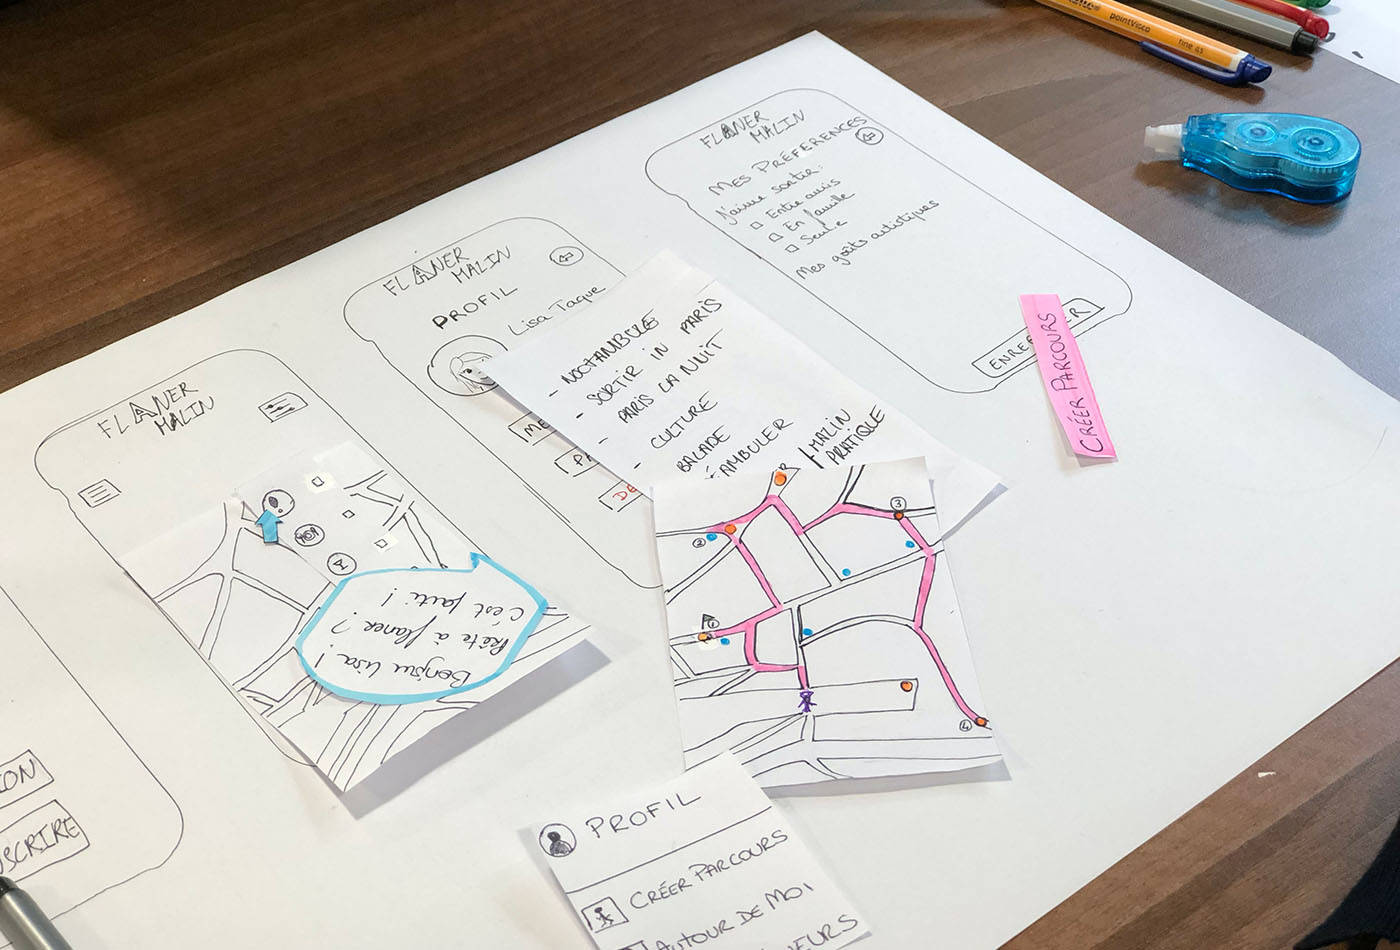 pointVisco
fine 0.5
FLÂNER
MALIN
MES PRÉFERENCES
J'aime sortir :
Entre amis
En famille
Seule
Mes goûts artistiques
CRÉER PARCOURS
FLÂNER
MALIN
PROFIL
Lisa Taque
ME
PA
DE
- NOCTAMBULE
- SORTIR IN PARIS
- PARIS LA NUIT
- CULTURE
BALADE
AMBULER
MALIN
PRATIQUE
FLÂNER
MALIN
Bonjour Lisa !
Prête à flâner ?
C'est parti !
2
3
4
ION
SCRIRE
PROFIL
CRÉER PARCOURS
AUTOUR DE MOI